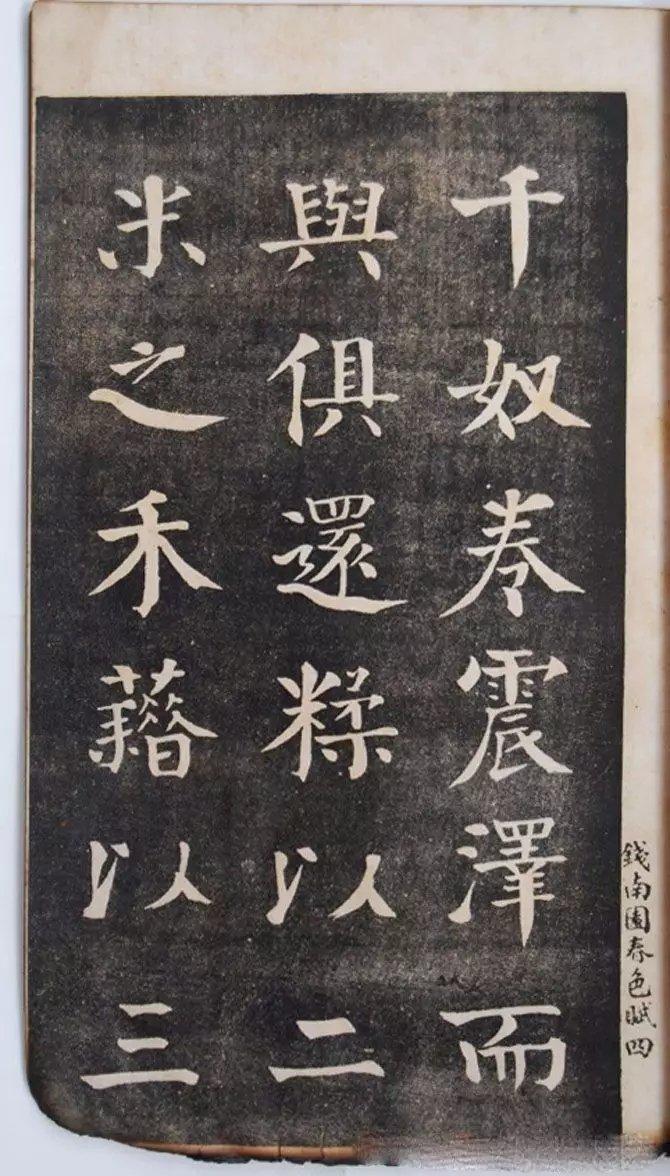 錢南園春色賦四
千奴卷震澤而
與俱還糅以二
米之禾藉以三